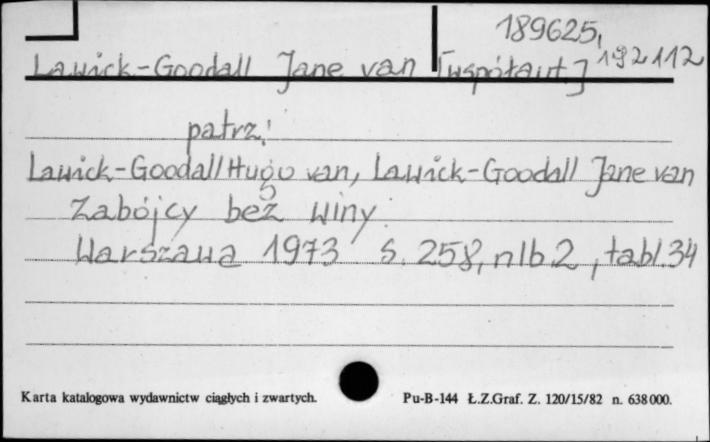 189625,
Lawick-Goodall Jane van [współaut.] 192112
patrz:
Lawick-Goodall Hugo van, Lawick-Goodall Jane van
Zabójcy bez winy.
Warszawa 1973 s. 258, nlb 2, tabl. 34
Karta katalogowa wydawnictw ciągłych i zwartych. Pu-B-144 Ł.Z.Graf. Z. 120/15/82 n. 638000.